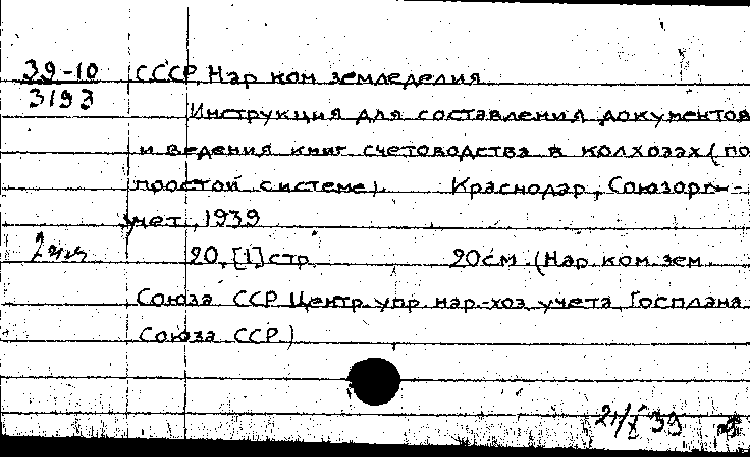 39-10
3193
СССР. Нар. ком. земледелия.
Инструкция для составления документов
и ведения книг счетоводства в колхозах (по
простой системе). Краснодар, Союзорг-
учет, 1939
20, [1] стр. 20 см. (Нар. ком. зем.
Союза ССР. Центр. упр. нар.-хоз. учета Госплана
Союза ССР)
21/X 39